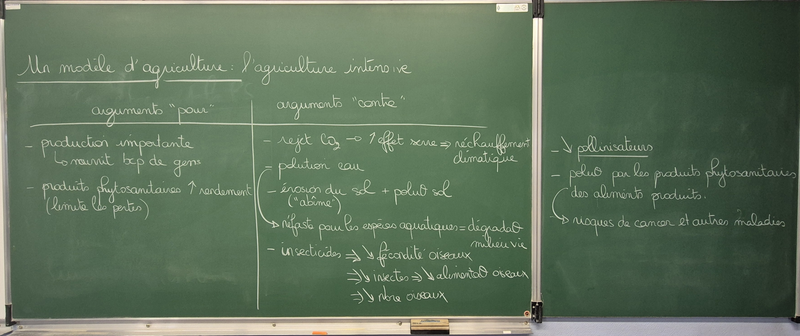 Un modèle d'agriculture : l'agriculture intensive
arguments "pour"
- production importante
↳ nourrit bcp de gens
- produits phytosanitaires ↑ rendement
(limite les pertes)
arguments "contre"
- rejet CO₂ → ↑ effet serre ⇒ réchauffement
climatique
- polution eau
- érosion du sol + polu° sol
("abîme")
→ néfaste pour les espèces aquatiques = dégrada°
milieu vie
- insecticides ⇒ ↘ fécondité oiseaux
⇒ ↘ insectes ⇒ ↘ alimenta° oiseaux
⇒ ↘ nbre oiseaux
- ↘ pollinisateurs
- polu° par les produits phytosanitaires
des aliments produits.
→ risques de cancer et autres maladies